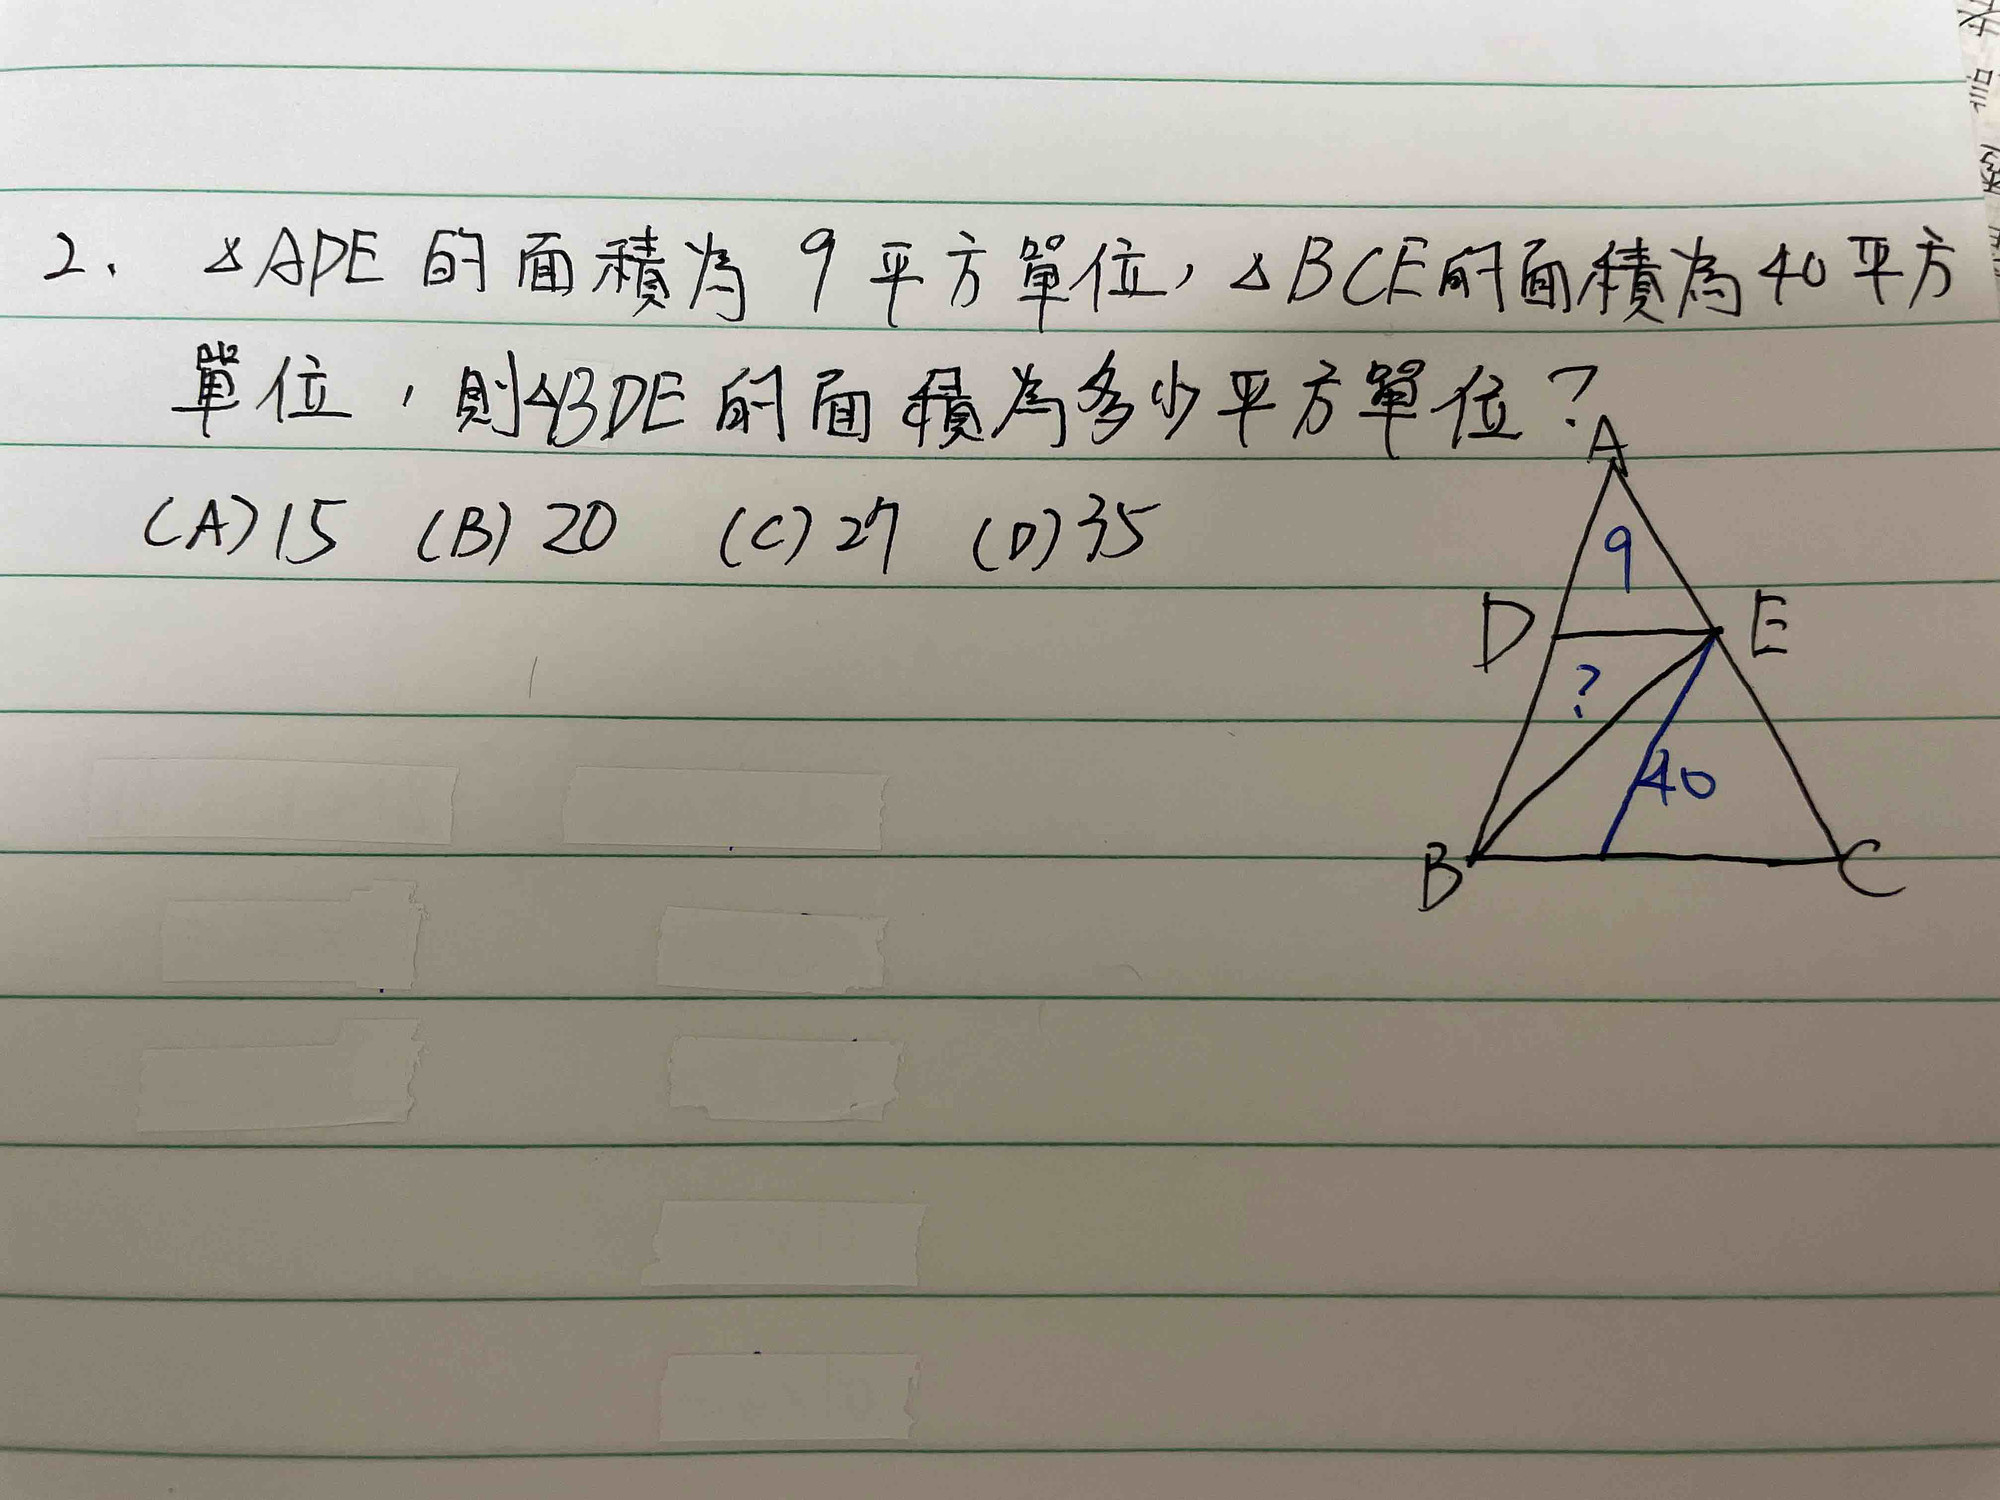 2. △ADE的面積為9平方單位，△BCE的面積為40平方
單位，則△BDE的面積為多少平方單位？
(A)15 (B)20 (C)27 (D)35
A
9
D E
?
40
B C